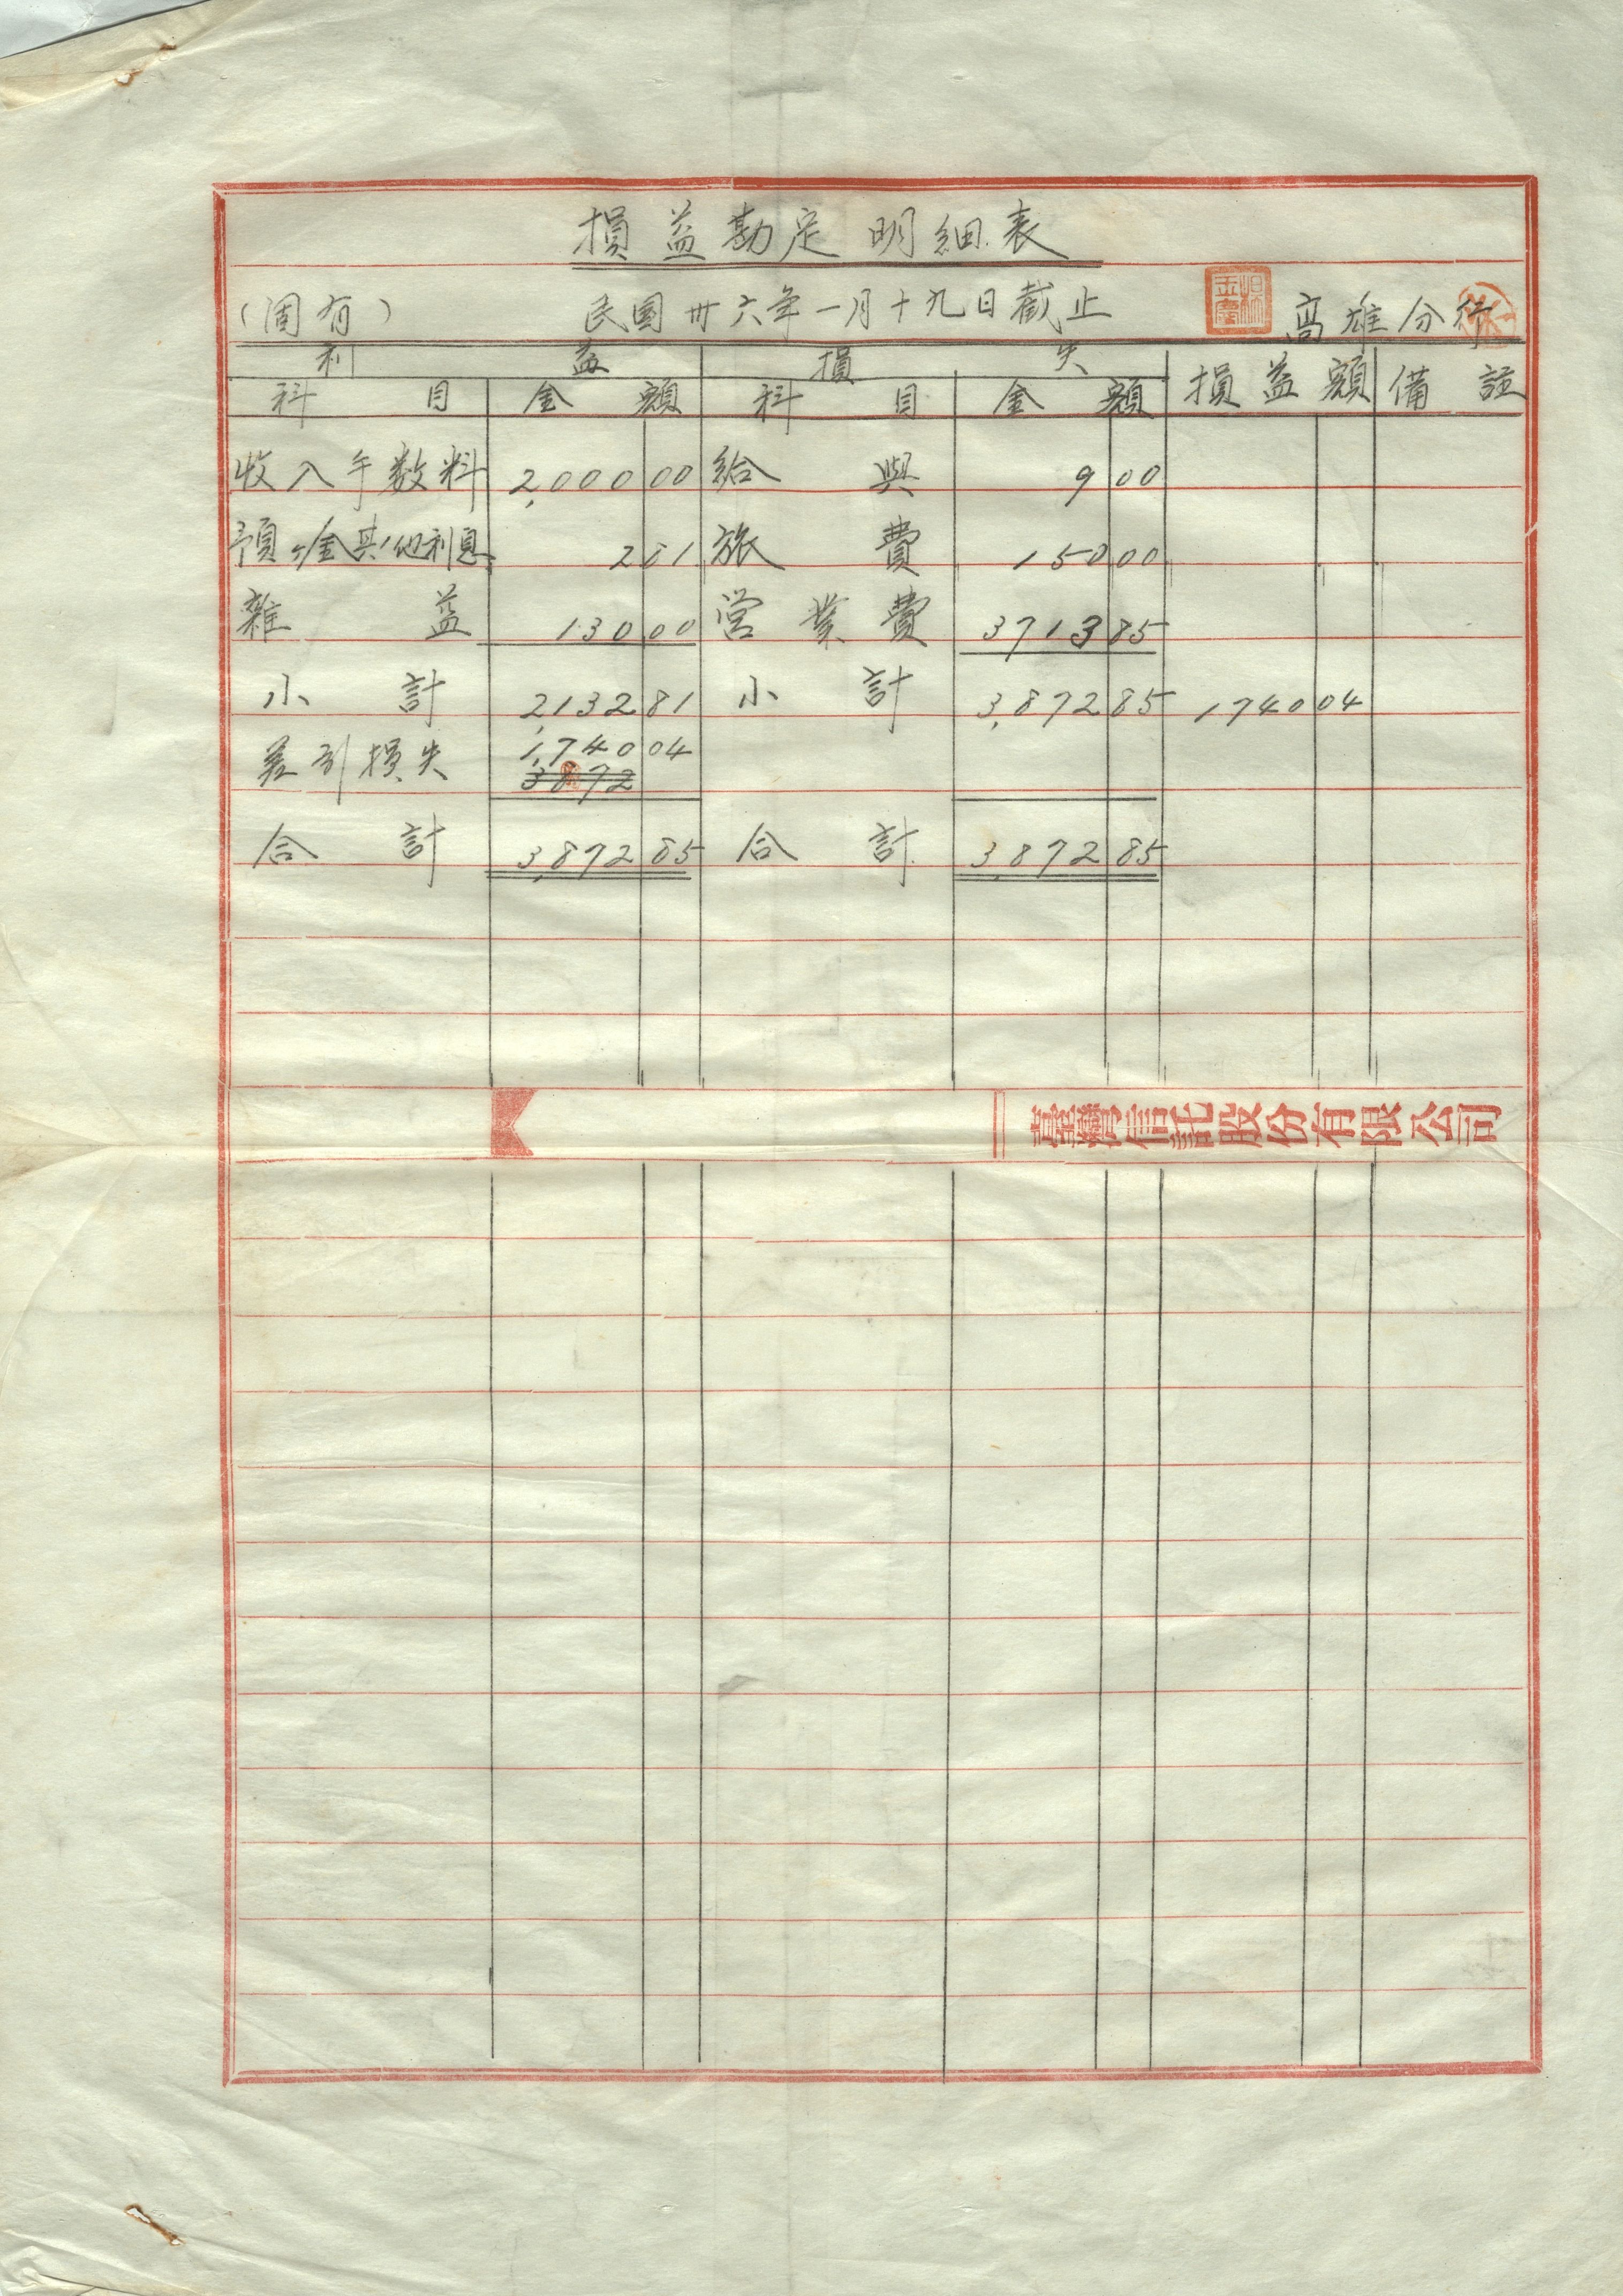 損益勘定明細表
(固有) 民国卅六年一月十九日截止 高雄分行
利益 損失 損益額 備註
科目 金額 科目 金額
收入手数料 2,000 00 給與 9 00
預ヶ金其他利息 2 81 旅費 150 00
雜益 130 00 営業費 3713 85
小計 2,132 81 小計 3,872 85 1740 04
差引損失 1,740 04
3872
合計 3,872 85 合計 3,872 85
臺灣信託股份有限公司